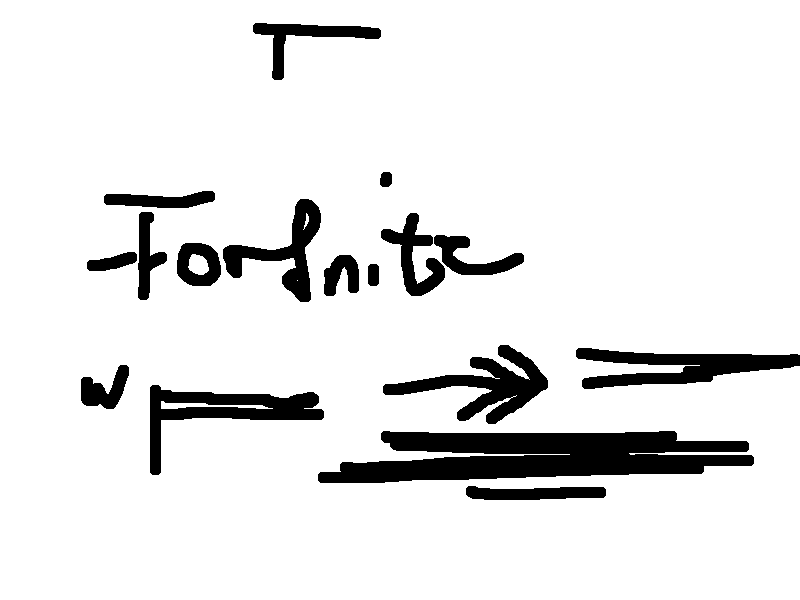 Fornite
w